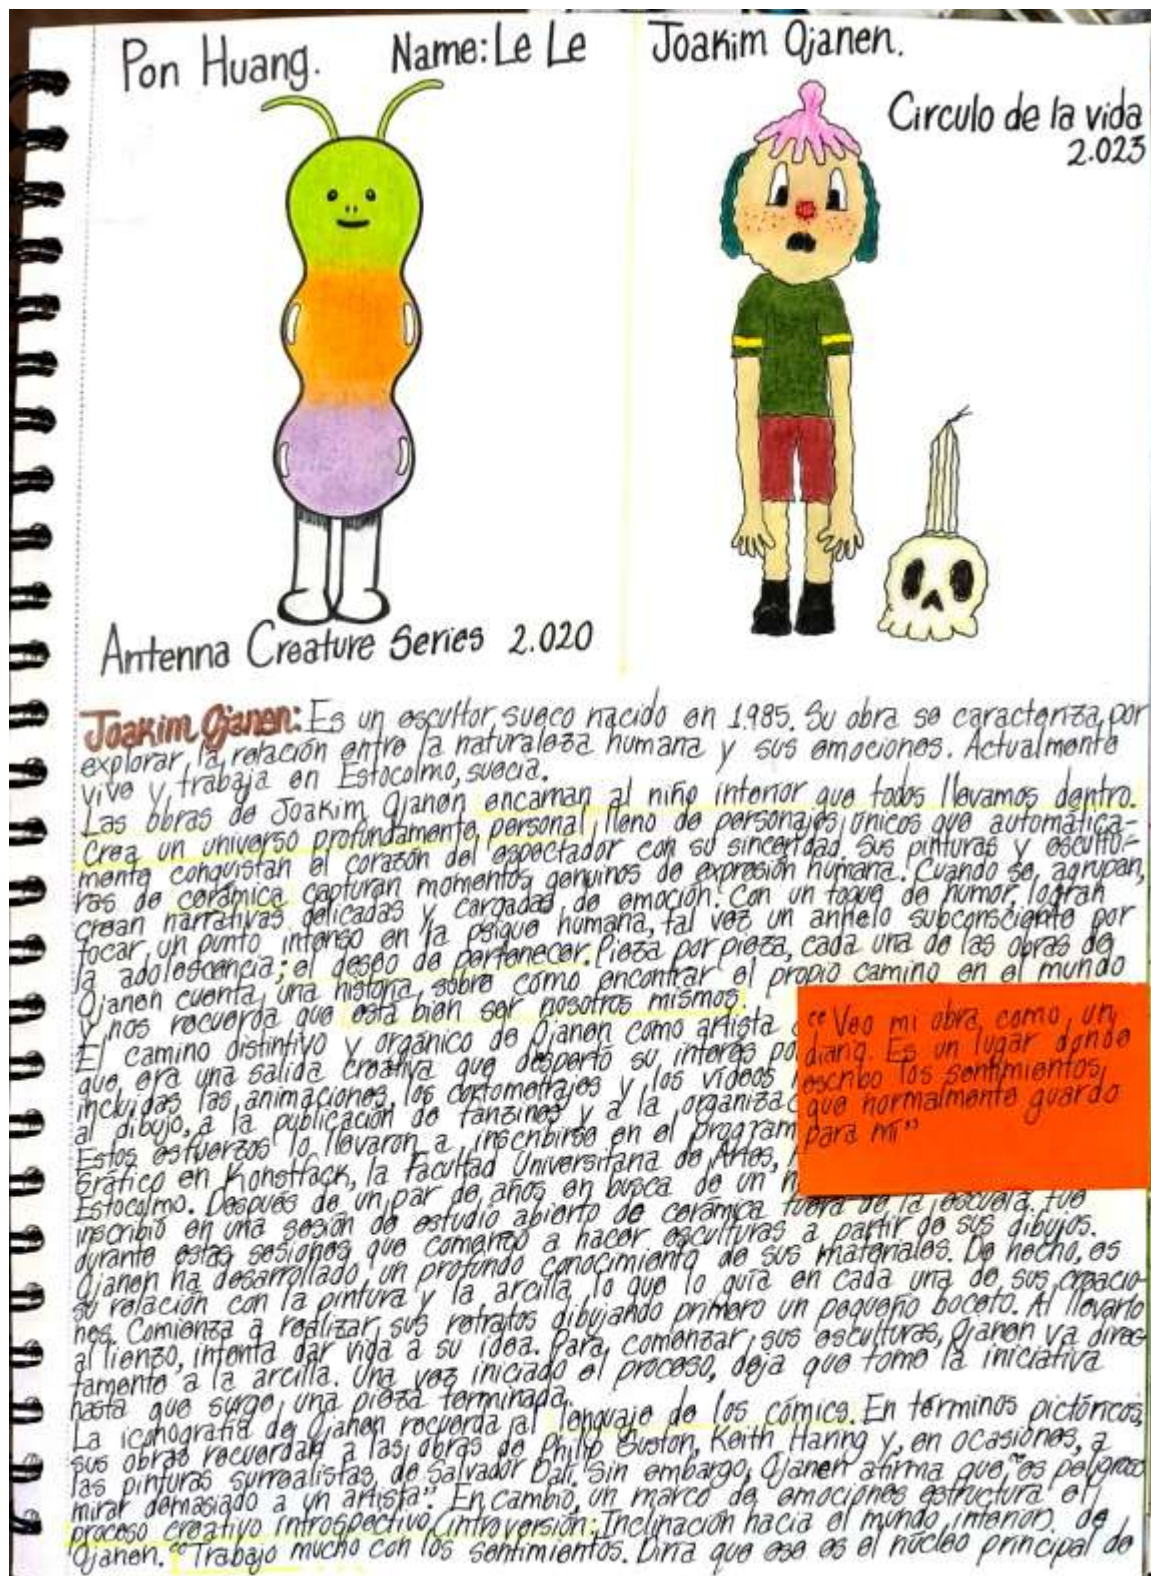 Pon Huang. Name: Le Le
Joakim Ojanen.
Circulo de la vida
2.023
Antenna Creature Series 2.020
Joakim Ojanen: Es un escultor sueco nacido en 1.985. Su obra se caracteriza por
explorar la relación entre la naturaleza humana y sus emociones. Actualmente
vive y trabaja en Estocolmo, suecia.
Las obras de Joakim Ojanen encarnan al niño interior que todos llevamos dentro.
Crea un universo profundamente personal, lleno de personajes únicos que automática-
mente conquistan el corazón del espectador con su sinceridad. Sus pinturas y escultu-
ras de cerámica capturan momentos genuinos de expresión humana. Cuando se agrupan,
crean narrativas delicadas y cargadas de emoción. Con un toque de humor, logran
tocar un punto intenso en la psique humana, tal vez un anhelo subconsciente por
la adolescencia; el deseo de pertenecer. Pieza por pieza, cada una de las obras de
Ojanen cuenta una historia sobre cómo encontrar el propio camino en el mundo
y nos recuerda que está bien ser nosotros mismos.
El camino distintivo y orgánico de Ojanen como artista
que era una salida creativa que despertó su interés po
incluidas las animaciones, los cortometrajes y los vídeos
al dibujo, a la publicación de fanzines y a la organizac
Estos esfuerzos lo llevaron a inscribirse en el program
Gráfico en Konstfack, la Facultad Universitaria de Artes,
Estocolmo. Después de un par de años en busca de un
fuera de la escuela, fue
inscribió en una sesión de estudio abierto de cerámica
durante estas sesiones que comenzó a hacer esculturas a partir de sus dibujos.
Ojanen ha desarrollado un profundo conocimiento de sus materiales. De hecho, es
su relación con la pintura y la arcilla lo que lo guía en cada una de sus creacio-
nes. Comienza a realizar sus retratos dibujando primero un pequeño boceto. Al llevarlo
al lienzo, intenta dar vida a su idea. Para comenzar sus esculturas, Ojanen va direc-
tamente a la arcilla. Una vez iniciado el proceso, deja que tome la iniciativa
hasta que surge una pieza terminada.
La iconografía de Ojanen recuerda al lenguaje de los cómics. En términos pictóricos,
sus obras recuerdan a las obras de Philip Guston, Keith Haring y, en ocasiones, a
las pinturas surrealistas de Salvador Dalí. Sin embargo, Ojanen afirma que "es peligroso
mirar demasiado a un artista". En cambio, un marco de emociones estructura el
proceso creativo introspectivo (introversión: Inclinación hacia el mundo interior) de
Ojanen. "Trabajo mucho con los sentimientos. Diría que ese es el núcleo principal de
"Veo mi obra como un
diario. Es un lugar donde
escribo los sentimientos
que normalmente guardo
para mí"